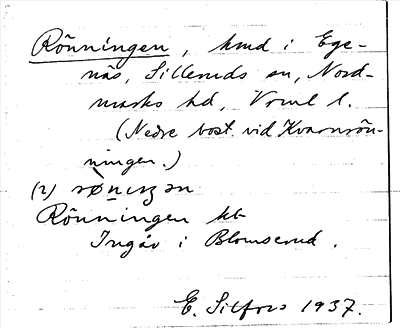 Rönningen, hmd i Ege-
näs, Silleruds sn, Nord-
marks hd, Vrml l.
(Nedre bost. vid Kvarnrön-
ningen.)
(2) rønıŋən
Rönningen kb
Ingår i Blomserud.
E. Silfors 1937.